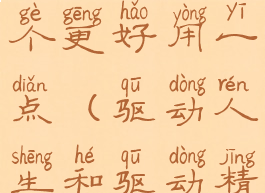 gè gēng hǎo yòng yī
个更好用一
diǎn qū dòng rén
点（驱动人
shēng hé qū dòng jīng
生和驱动精